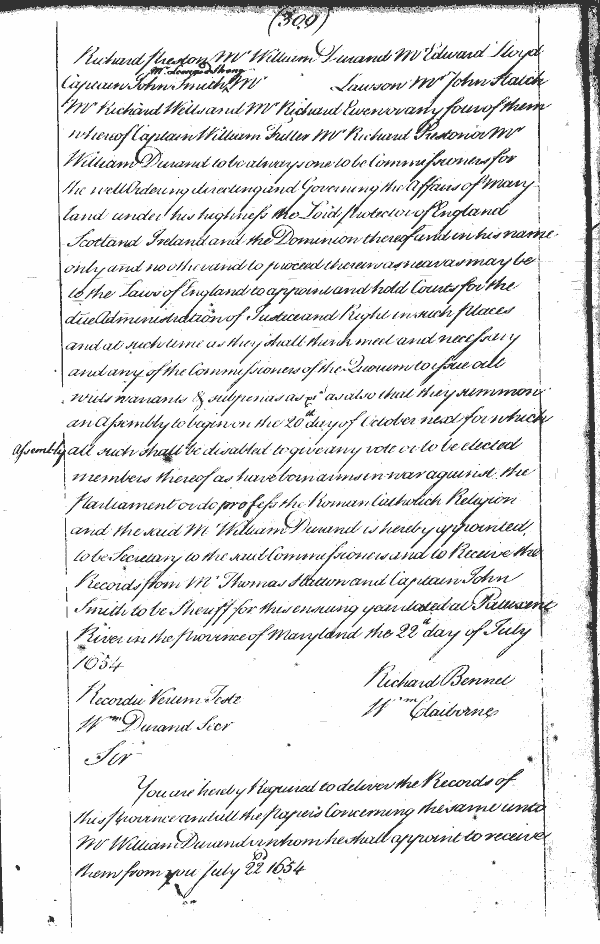 (309)
Richard Preston Mr William Durand Mr Edward Lloyd
Captain John Smith, Mr Lawson Mr John Hatch
Mr Richard Wells and Mr Richard Ewen or any four of them
whereof Captain William Fuller Mr Richard Preston or Mr
William Durand to be always one to be Commissioners for
the well Ordering directing and Governing the Affairs of Mary
land under his highness the Lord protector of England
Scotland Ireland and the Dominion thereof and in his name
only and no other and to proceed therein as near as may be
to the Laws of England to appoint and hold Courts for the
due Administration of Justice and Right in such places
and at such time as they shall think meet and necessary
and any of the Commissioners of the Quorum to issue all
writs warrants & subpenas as also that they summon
an Assembly to begin on the 20th day of October next for which
Assembly all such shall be disabled to give any vote or to be elected
members thereof as have born arms in war against the
Parliament or do profess the Roman Catholick Religion
and the said Mr William Durand is hereby appointed
to be Secretary to the said Commissioners and to Receive the
Records from Mr Thomas Hatton and Captain John
Smith to be Sheriff for this ensuing year dated at Patuxent
River in the province of Maryland the 22th day of July
1654
Richard Bennet
Recordu Verum Teste
Wm Claiborne
Wm Durand Secr
Sir
You are hereby Required to deliver the Records of
this province and all the papers Concerning the same unto
Mr William Durand or whom he shall appoint to receive
them from you July 22d 1654